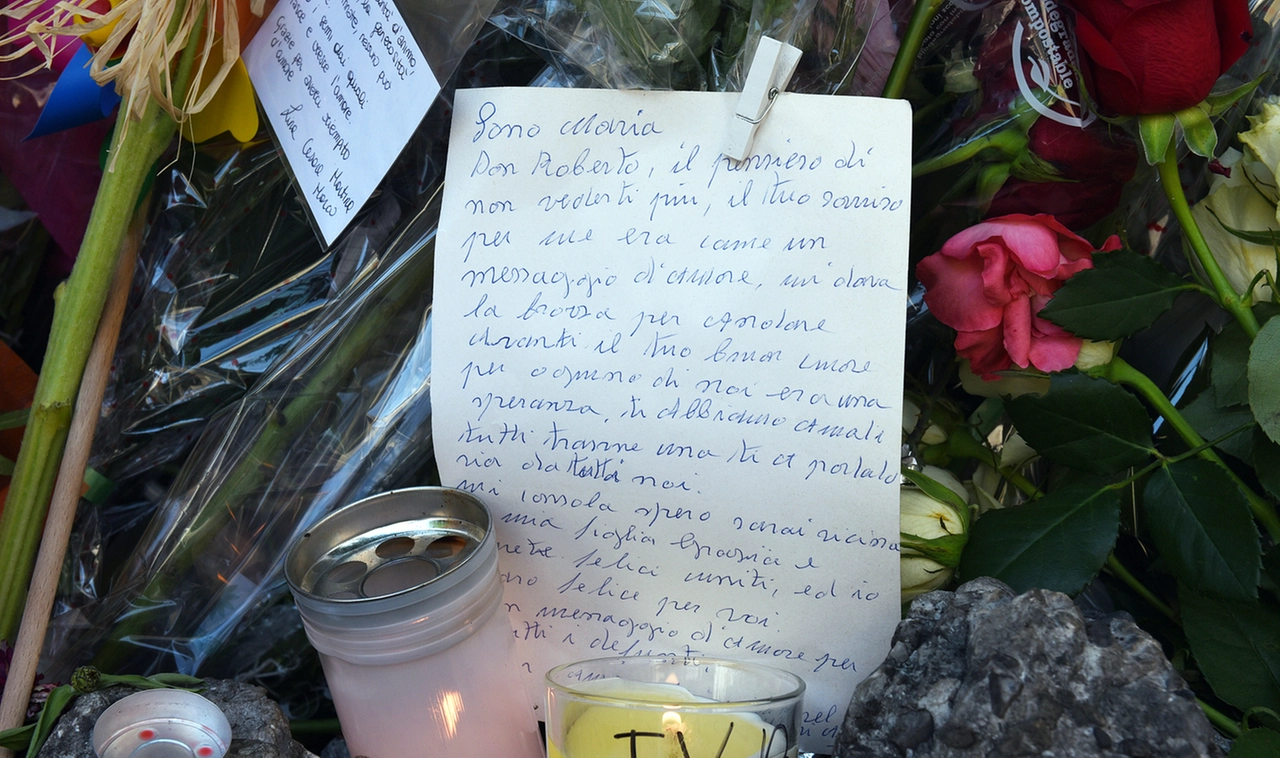 d'animo
generosità!
nostre resterai per
e semi dai quali
e cresce l'amore.
Grazie per averci riempito
d'amore
Lisa Cesare Martina
Marco
compostable
Sono Maria
Don Roberto, il pensiero di
non vederti più, il tuo sorriso
per me era come un
messaggio d'amore, mi dava
la forza per andare
avanti il tuo amore
per ognuno di noi era una
speranza, ti abbiamo amati
tutti tranne una ti a portato
via da tutti noi.
mi consola spero sarai vicino
mia figlia Grazia e
felici uniti, ed io
felice per voi
messaggio d'amore per
i defunti
TVB